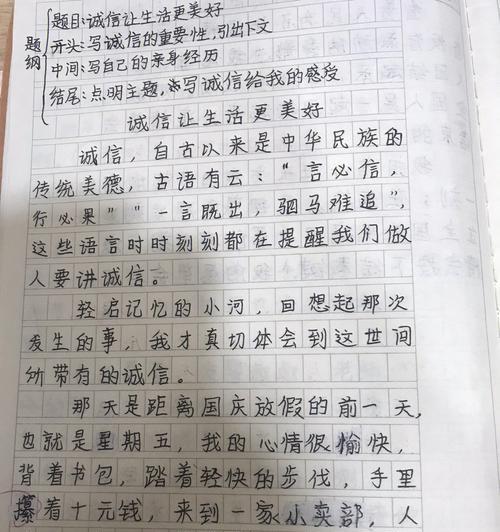 题纲
题目:诚信让生活更美好
开头:写诚信的重要性,引出下文
中间:写自己的亲身经历
结尾:点明主题,写诚信给我的感受
诚信让生活更美好
诚信,自古以来是中华民族的
传统美德,古语有云:“言必信,
行必果”“一言既出,驷马难追”,
这些语言时时刻刻都在提醒我们做
人要讲诚信。
轻启记忆的小河,回想起那次
发生的事,我才真切体会到这世间
所带有的诚信。
那天是距离国庆放假的前一天,
也就是星期五,我的心情很愉快,
背着书包,踏着轻快的步伐,手里
攥着十元钱,来到一家小卖部,人